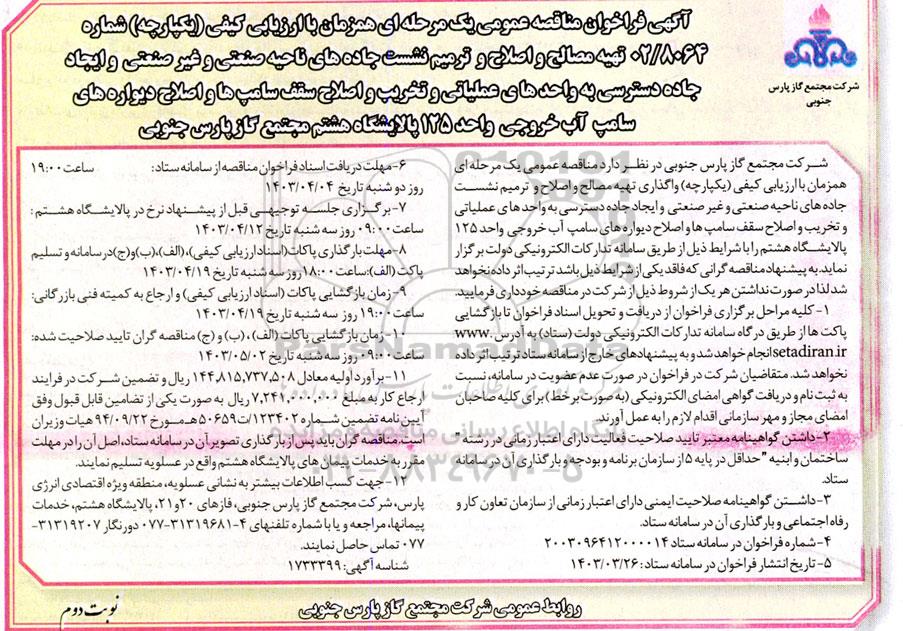 آگهی فراخوان مناقصه عمومی یک مرحله ای همزمان با ارزیابی کیفی (یکپارچه) شماره
۰۲/۸۰۶۴ تهیه مصالح و اصلاح و ترمیم نشست جاده های ناحیه صنعتی و غیر صنعتی و ایجاد
جاده دسترسی به واحد های عملیاتی و تخریب و اصلاح سقف سامپ ها و اصلاح دیواره های
سامپ آب خروجی واحد ۱۲۵ پالایشگاه هشتم مجتمع گاز پارس جنوبی
شرکت مجتمع گاز پارس
جنوبی
شرکت مجتمع گاز پارس جنوبی در نظر دارد مناقصه عمومی یک مرحله ای
همزمان با ارزیابی کیفی (یکپارچه) واگذاری تهیه مصالح و اصلاح و ترمیم نشست
جاده های ناحیه صنعتی و غیر صنعتی و ایجاد جاده دسترسی به واحد های عملیاتی
و تخریب و اصلاح سقف سامپ ها و اصلاح دیواره های سامپ آب خروجی واحد ۱۲۵
پالایشگاه هشتم را با شرایط ذیل از طریق سامانه تدارکات الکترونیکی دولت برگزار
نماید. به پیشنهاد مناقصه گرانی که فاقد یکی از شرایط ذیل باشد ترتیب اثر داده نخواهد
شد لذا در صورت نداشتن هر یک از شروط ذیل از شرکت در مناقصه خودداری فرمایید.
۱-کلیه مراحل برگزاری فراخوان از دریافت و تحویل اسناد فراخوان تا بازگشایی
پاکت ها از طریق درگاه سامانه تدارکات الکترونیکی دولت (ستاد) به آدرس .www
setadiran.ir انجام خواهد شد و به پیشنهادهای خارج از سامانه ستاد ترتیب اثر داده
نخواهد شد. متقاضیان شرکت در فراخوان در صورت عدم عضویت در سامانه، نسبت
به ثبت نام و دریافت گواهی امضای الکترونیکی (به صورت برخط) برای کلیه صاحبان
امضای مجاز و مهر سازمانی اقدام لازم را به عمل آورند.
۲-داشتن گواهینامه معتبر تایید صلاحیت فعالیت دارای اعتبار زمانی در رشته "
ساختمان و ابنیه " حداقل در پایه ۵ از سازمان برنامه و بودجه و بارگذاری آن در سامانه
ستاد.
۳-داشتن گواهینامه صلاحیت ایمنی دارای اعتبار زمانی از سازمان تعاون کار و
رفاه اجتماعی و بارگذاری آن در سامانه ستاد.
۴-شماره فراخوان در سامانه ستاد ۲۰۰۳۰۹۶۴۱۲۰۰۰۰۱۴
۵-تاریخ انتشار فراخوان در سامانه ستاد: ۱۴۰۳/۰۳/۲۶
۶-مهلت دریافت اسناد فراخوان مناقصه از سامانه ستاد: ساعت ۱۹:۰۰
روز دو شنبه تاریخ ۱۴۰۳/۰۴/۰۴
۷-برگزاری جلسه توجیهی قبل از پیشنهاد نرخ در پالایشگاه هشتم :
ساعت ۰۹:۰۰ روز سه شنبه تاریخ ۱۴۰۳/۰۴/۱۲
۸-مهلت بارگذاری پاکات (اسناد ارزیابی کیفی)، (الف)، (ب) و (ج) در سامانه و تسلیم
پاکت (الف): ساعت ۱۸:۰۰ روز سه شنبه تاریخ ۱۴۰۳/۰۴/۱۹
۹-زمان بازگشایی پاکات (اسناد ارزیابی کیفی) و ارجاع به کمیته فنی بازرگانی:
ساعت ۱۹:۰۰ روز سه شنبه تاریخ ۱۴۰۳/۰۴/۱۹
۱۰-زمان بازگشایی پاکات (الف) ، (ب) و (ج) مناقصه گران تایید صلاحیت شده:
ساعت ۰۹:۰۰ روز سه شنبه تاریخ ۱۴۰۳/۰۵/۰۲
۱۱-برآورد اولیه معادل ۱۴۴,۸۱۵,۷۳۷,۵۰۸ ریال و تضمین شرکت در فرایند
ارجاع کار به مبلغ ۷,۲۴۱,۰۰۰,۰۰۰ ریال به صورت یکی از تضامین قابل قبول وفق
آیین نامه تضمین شماره ۱۲۳۴۰۲/ت۵۰۶۵۹هـ مورخ ۹۴/۰۹/۲۲ هیات وزیران
است. مناقصه گران باید پس از بارگذاری تصویر آن در سامانه ستاد، اصل آن را در مهلت
مقرر به خدمات پیمان های پالایشگاه هشتم واقع در عسلویه تسلیم نمایند.
۱۲-جهت کسب اطلاعات بیشتر به نشانی عسلویه، منطقه ویژه اقتصادی انرژی
پارس، شرکت مجتمع گاز پارس جنوبی، فازهای ۲۰ و ۲۱، پالایشگاه هشتم، خدمات
پیمانها، مراجعه و یا با شماره تلفنهای ۴-۳۱۳۱۹۶۸۱-۰۷۷ دورنگار ۳۱۳۱۹۲۰۷-
۰۷۷ تماس حاصل نمایند.
شناسه آگهی: ۱۷۳۳۳۹۹
روابط عمومی شرکت مجتمع گاز پارس جنوبی
نوبت دوم